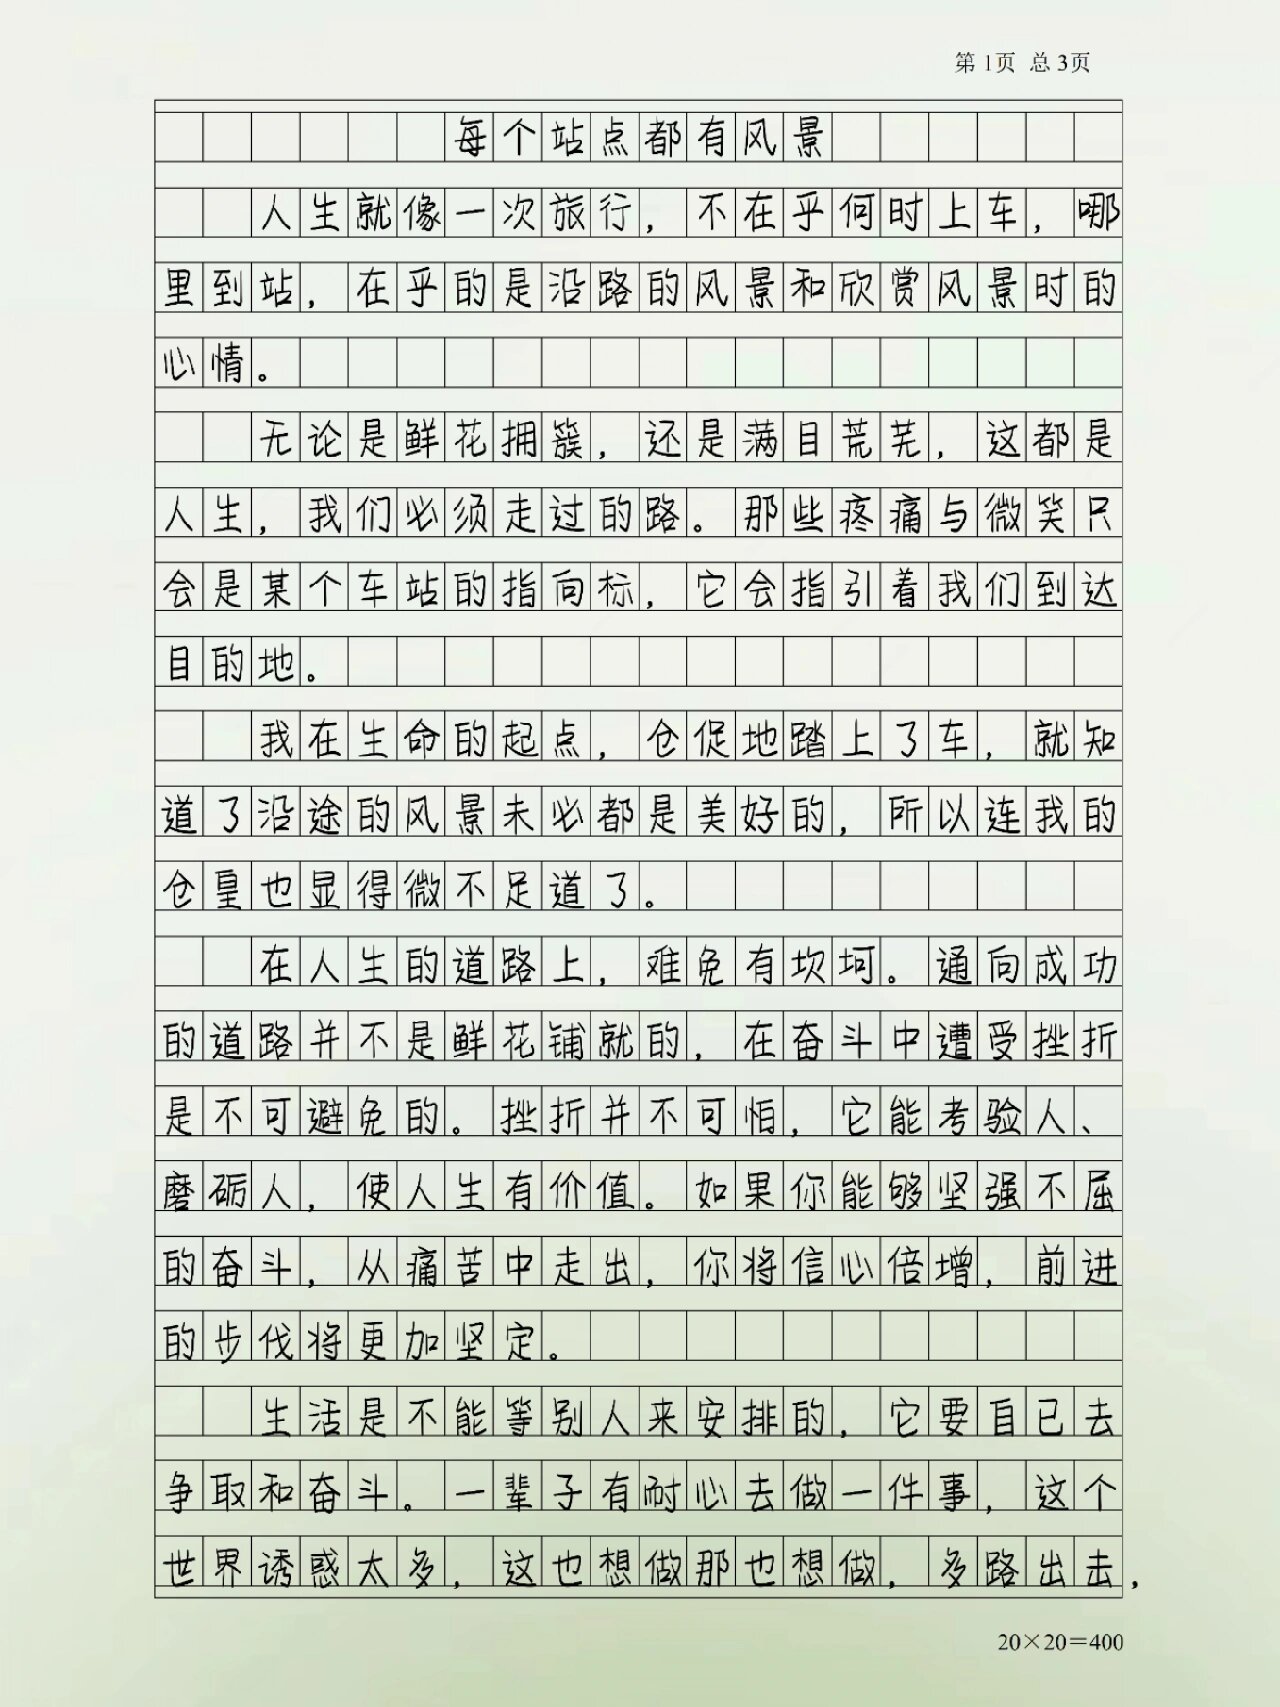 第1页 总3页
每个站点都有风景
人生就像一次旅行，不在乎何时上车，哪
里到站，在乎的是沿路的风景和欣赏风景时的
心情。
无论是鲜花拥簇，还是满目荒芜，这都是
人生，我们必须走过的路。那些疼痛与微笑只
会是某个车站的指向标，它会指引着我们到达
目的地。
我在生命的起点，仓促地踏上了车，就知
道了沿途的风景未必都是美好的，所以连我的
仓皇也显得微不足道了。
在人生的道路上，难免有坎坷。通向成功
的道路并不是鲜花铺就的，在奋斗中遭受挫折
是不可避免的。挫折并不可怕，它能考验人、
磨砺人，使人生有价值。如果你能够坚强不屈
的奋斗，从痛苦中走出，你将信心倍增，前进
的步伐将更加坚定。
生活是不能等别人来安排的，它要自己去
争取和奋斗。一辈子有耐心去做一件事，这个
世界诱惑太多，这也想做那也想做，多路出去，
20×20=400